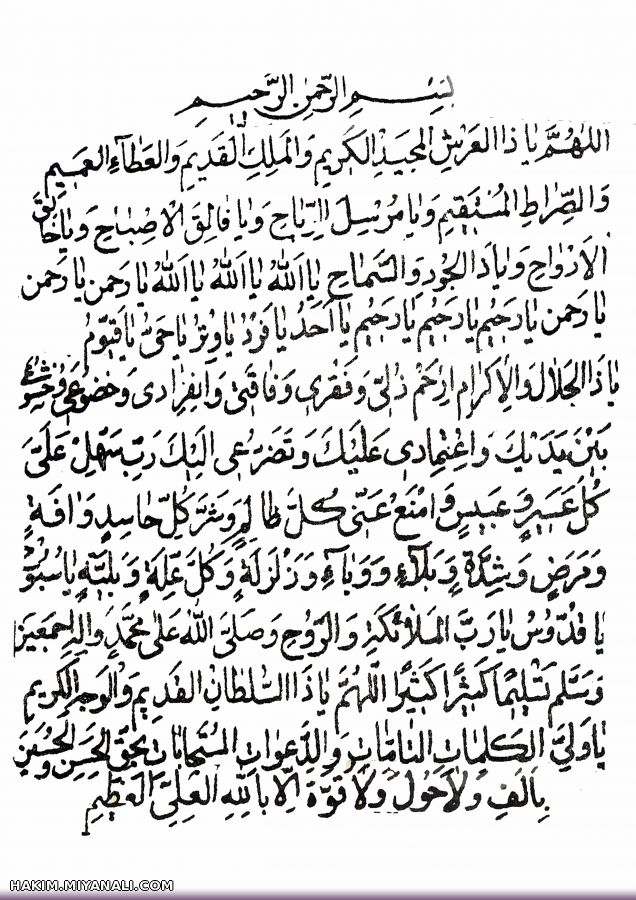 بِسْمِ الرَّحْمٰنِ الرَّحیمِ
اللهُمَّ یٰا ذَا الْعَرْشِ الْمَجیدِ الْکَریمِ وَالْمَلِکِ الْقَدیمِ وَالْعَطٰآءِ الْعَمیمِ
وَالصِّرٰاطِ الْمُسْتَقیمِ وَیٰا مُرْسِلَ الرِّیٰاحِ وَیٰا فٰالِقَ الْاِصْبٰاحِ وَیٰا خٰالِقَ
الْاَرْوٰاحِ وَیٰا ذَا الْجُودِ وَالسَّمٰاحِ یٰا اَللهُ یٰا اَللهُ یٰا اَللهُ یٰا رَحمن یٰا رَحمن
یٰا رَحمن یٰا رَحیٖم یٰا رَحیٖم یٰا رَحیٖم یٰا اَحَدُ یٰا فَرْدُ یٰا وِتْرُ یٰا حَیُّ یٰا قَیّوُمُ
یٰا ذَا الْجَلٰالِ وَالْاِکرٰامِ اِرْحَمْ ذُلّی وَفَقْری وَفٰاقَتی وَانْفِرٰادی وَخُضُوعی وَخُشُوعی
بَیْنَ یَدَیْکَ وَاعْتِمٰادی عَلَیْکَ وَتَضَرُّعی اِلَیْکَ رَبِّ سَهِّلْ عَلَیَّ
کُلَّ عَسیرٍ وَ عَبیسٍ وَامْنَعْ عَنّی کُلَّ ظٰالِمٍ وَشَرَّ کُلِّ حٰاسِدٍ وَاٰفَةٍ
وَمَرَضٍ وَشِدَّةٍ وَبَلٰاءٍ وَوَبٰاءٍ وَزَلْزَلَةٍ وَکُلَّ عِلَّةٍ وَبَلیَّةٍ یٰا سُبُّوحُ
یٰا قُدُّوسُ یٰا رَبَّ الْمَلٰائِکَةِ وَالرّوُحِ وَصَلَّی اللهُ عَلٰی مُحَمَّدٍ وَالِهِ اَجْمَعینَ
وَسَلَّمَ تَسْلیمًا کَثیرًا کَثیرًا اَللّهُمَّ یٰا ذَا السُّلْطٰانِ الْقَدیمِ وَالْوَجهِ الْکَریمِ
یٰا وَلِیَّ الْکَلِمٰاتِ التّٰامّٰاتِ وَالدَّعَوٰاتِ الْمُسْتَجٰابٰاتِ بِحَقِّ الْحَسَنِ وَالْحُسَیْنِ
وَلٰا حَوْلَ وَلٰا قُوَّةَ اِلّٰا بِاللهِ الْعَلِیِّ الْعَظیمِ
HAKIM.MIYANALI.COM